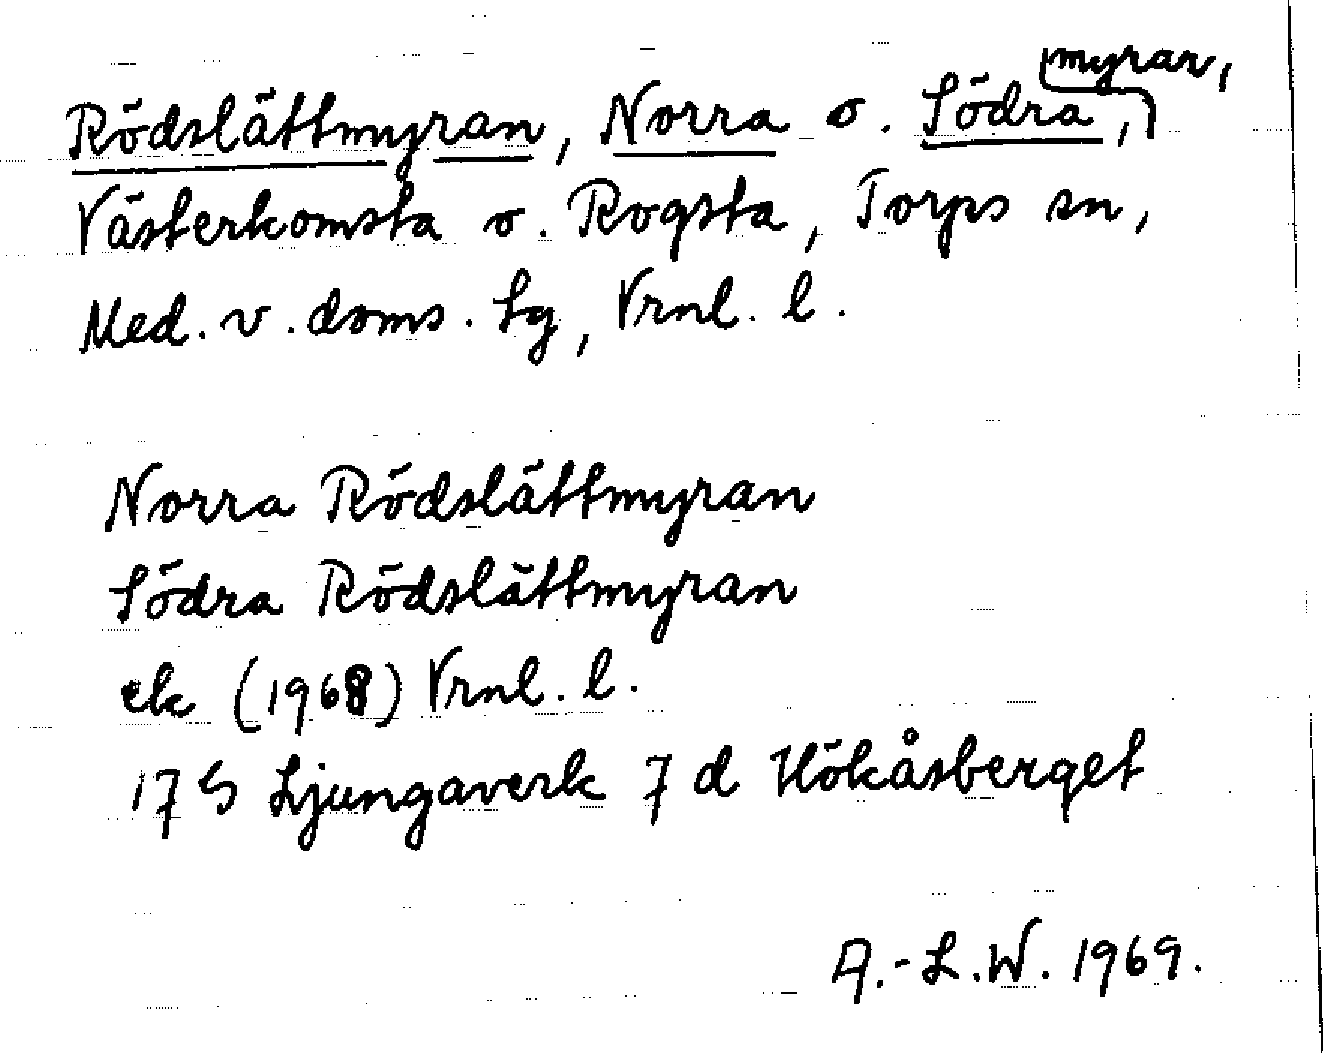 Rödslättmyran, Norra o. Södra, myrar,
Västerkomsta o. Rogsta, Torps sn,
Med. v. doms. Lg, Vrnl. l.
Norra Rödslättmyran
Södra Rödslättmyran
ek (1968) Vrnl. l.
17 G Ljungaverk 7 d Hökåsberget
A.-L.W. 1969.